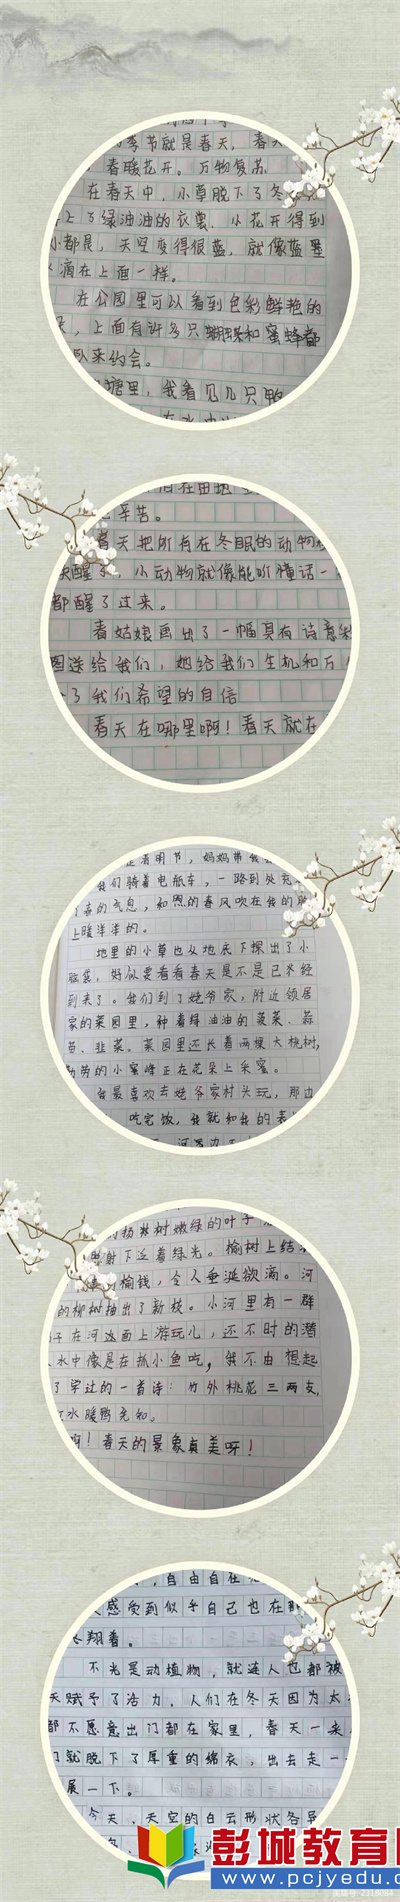 季节就是春天,春天
春暖花开。万物复苏
在春天中,小草脱下了冬
上了绿油油的衣裳.小花开得到
都是,天空变得很蓝,就像蓝墨
滴在上面一样。
在公园里可以看到色彩鲜艳的
,上面有许多只蝴蝶和蜜蜂都
来约会。
塘里,我看见几只鸭
辛苦。
春天把所有在冬眠的动物
醒了,小动物就像能听懂话一
都醒了过来。
春姑娘画出了一幅具有诗意
图送给我们,她给我们生机和万
了我们希望的自信
春天在哪里啊!春天就在
是清明节,妈妈带我
我们骑着电瓶车,一路到处充
了春的气息,和煦的春风吹在我的
上暖洋洋的。
地里的小草也从地底下探出了小
脑袋,好似要看看春天是不是已经
到来了。我们到了姥爷家,附近领居
家的菜园里,种着绿油油的菠菜、蒜
苗、韭菜。菜园里还长着两棵大桃树,
勤劳的小蜜蜂正在花朵上采蜜。
我最喜欢去姥爷家村头玩,那边
吃完饭,我就和我的表
的杨树嫩绿的叶子
照射下泛着绿光。榆树上结
榆钱,令人垂涎欲滴。河
的柳树抽出了新枝。小河里有一群
子在河边面上游玩儿,还不时的潜
水中像是在抓小鱼吃,我不由想起
了学过的一首诗:竹外桃花三两支,
江水暖鸭先知。
啊!春天的景象真美呀!
,自由自在
感受到似乎自己也在那
翔着。
不光是动植物,就连人也都被
天赋予了活力,人们在冬天因为太
都不愿意出门都在家里,春天一来
们就脱下了厚重的绵衣,出去走一
展一下。
今天,天空的白云形状各异
彭城教育网
www.pcjyedu.com